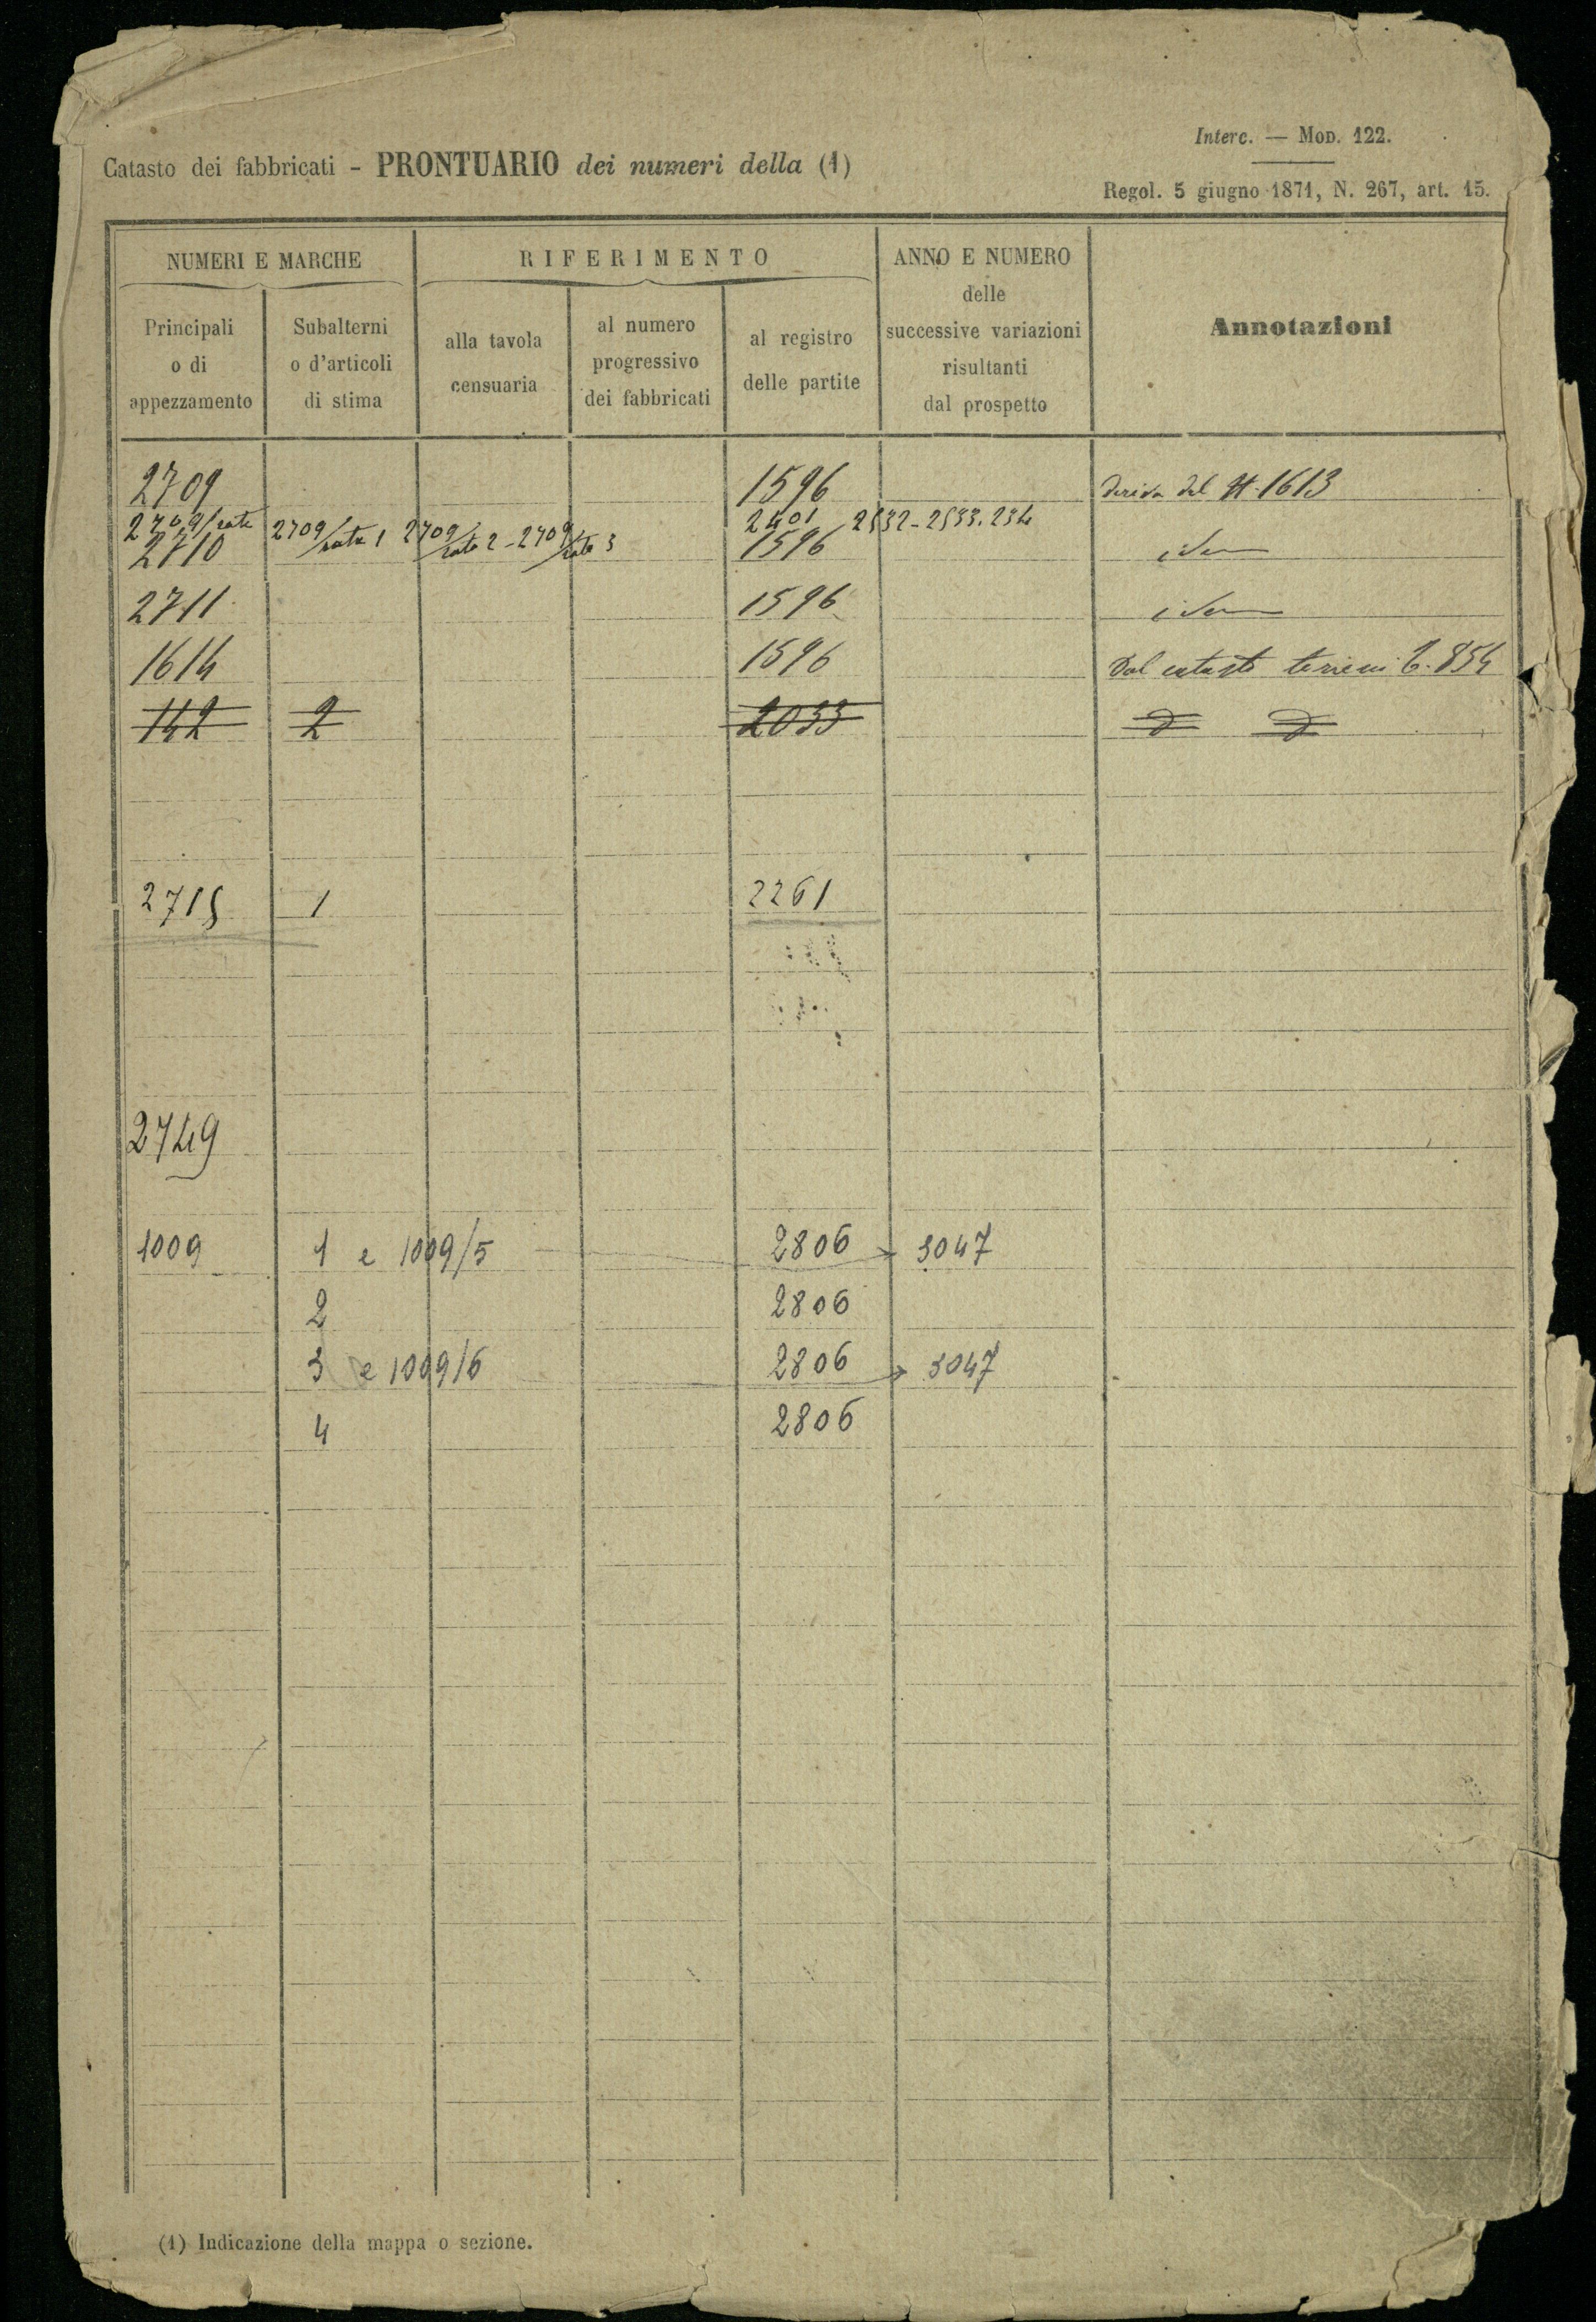 Interc. — Mod. 122.
Catasto dei fabbricati - PRONTUARIO dei numeri della (1)
Regol. 5 giugno 1871, N. 267, art. 15.
NUMERI E MARCHE
RIFERIMENTO
ANNO E NUMERO
delle
successive variazioni
risultanti
dal prospetto
Annotazioni
Principali
o di
appezzamento
Subalterni
o d'articoli
di stima
alla tavola
censuaria
al numero
progressivo
dei fabbricati
al registro
delle partite
2709 1596 deriva del N. 1613
2709/rata 2709/rata 1 2709/rata 2 - 2709/rata 3 2401 2532-2533.
2710 1596 idem
2711 1596 idem
1614 1596 Dal catasto terreni
142 2 2033
2715 1 2261
2749
1009 1 e 1009/5 2806 3047
2 2806
3 e 1009/6 2806 3047
4 2806
(1) Indicazione della mappa o sezione.